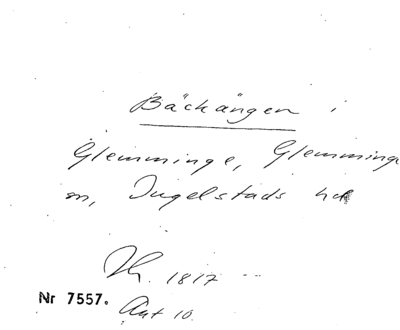 Bäckängen i
Glemminge, Glemminge
sn, Ingelstads hd
1817
Nr 7557.
Akt 10.